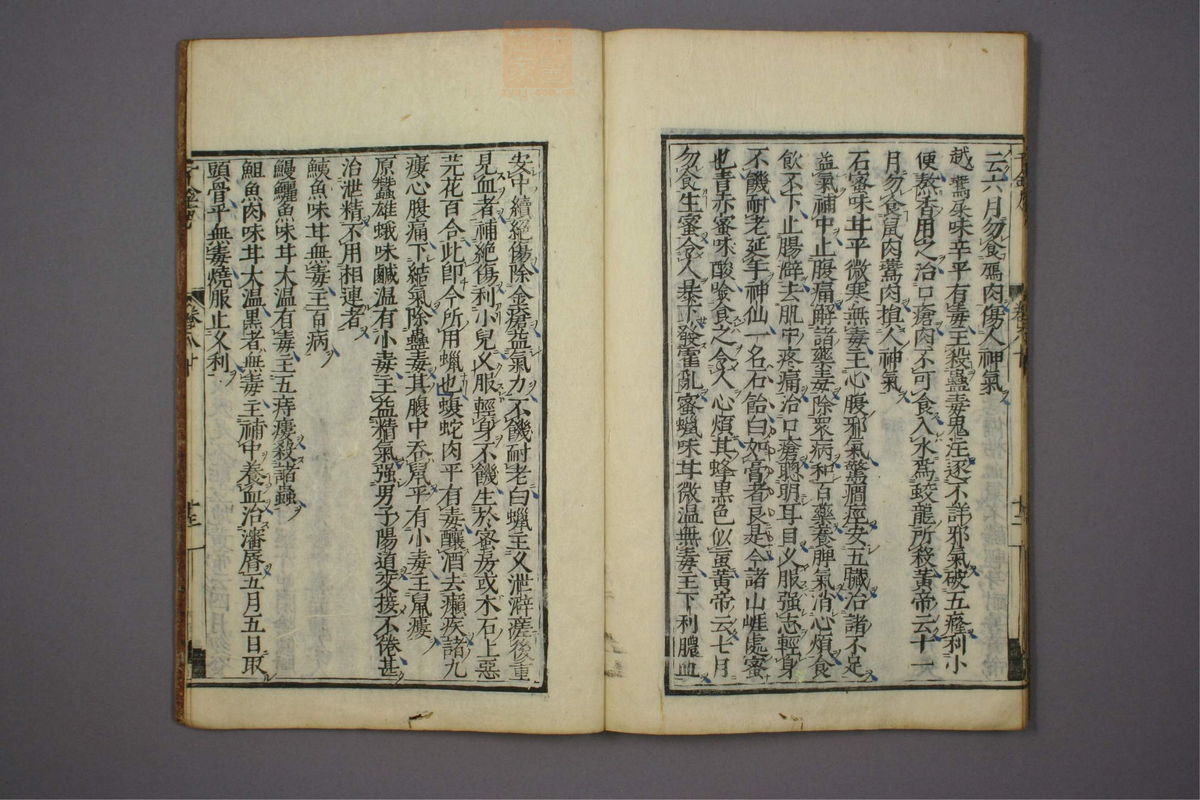 云六月勿食鴈肉傷人神氣
越鷰屎味辛平有毒主殺蠱毒鬼注逐不詳邪氣破五癃利小
便熬香用之治口瘡肉不可食入水爲蛟龍所殺黄帝云十一
月勿食鼠肉鷰肉損人神氣
石蜜味甘平微寒無毒主心腹邪氣驚癎痙安五臟治諸不足
益氣補中止腹痛解諸藥毒除衆病和百藥養脾氣消心煩食
飲不下止腸澼去肌中疼痛治口瘡聰明耳目久服强志輕身
不饑耐老延年神仙一名石飴白如膏者良是今諸山崖處蜜
也青赤蜜味酸噞食之令人心煩其蜂黒色似䖟黄帝云七月
勿食生蜜令人暴下發霍亂蜜蠟味甘微温無毒主下利膿血
安中續絶傷除金瘡益氣力不饑耐老白蠟主久泄澼瘥後重
見血者補絶傷利小兒久服輕身不饑生於蜜房或木石上惡
芫花百合此即今所用蠟也蝮蛇肉平有毒釀酒去癩疾諸九
瘻心腹痛下結氣除蠱毒其腹中吞鼠平有小毒主鼠瘻
原蠶雄蛾味鹹温有小毒主益精氣强男子陽道交接不倦甚
治泄精不用相連者
鮧魚味甘無毒主百病
鰻鱺魚味甘大温有毒主五痔瘻殺諸蟲
䱉魚肉味甘大温黒者無毒主補中養血治瀋唇五月五日取
頭骨平無毒燒服止久利
卷八十
廿二
廿三